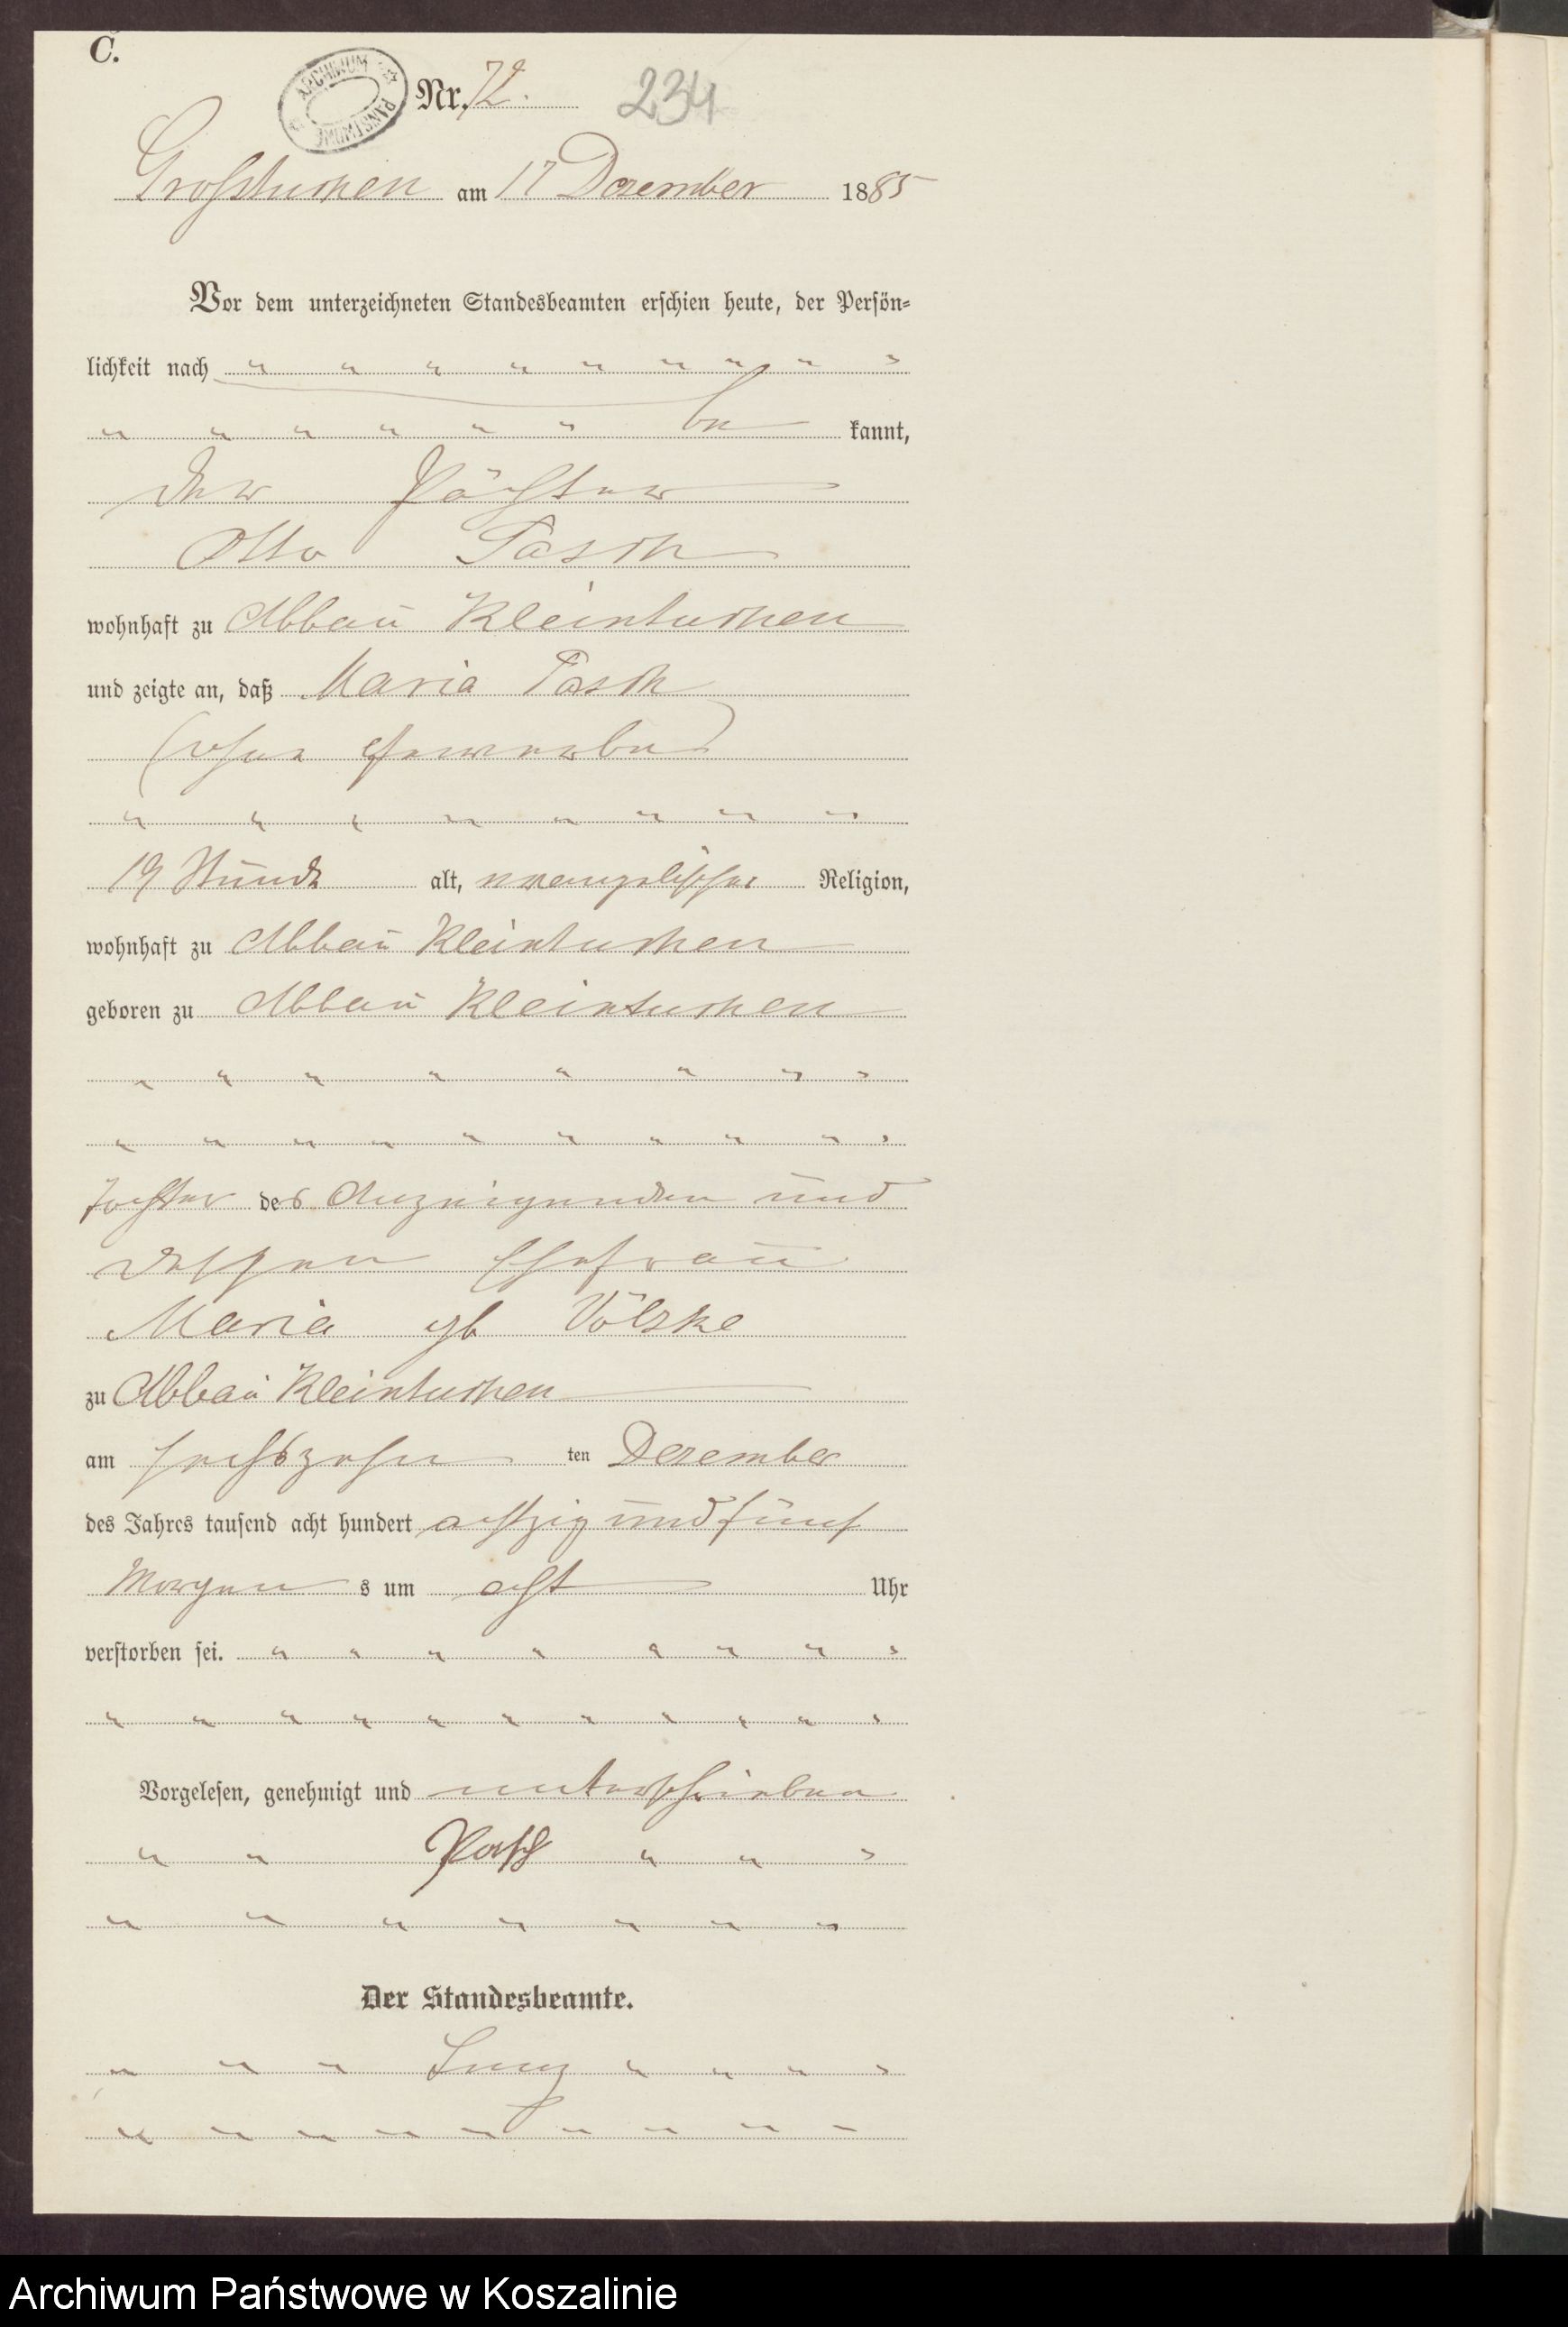 C.
ARCHIWUM PAŃSTWOWE
Nr. 72. 234
Grosstuchen am 17 Dezember 1885
Vor dem unterzeichneten Standesbeamten erschien heute, der Persön-
lichkeit nach
be kannt,
der Pächter
Otto Pasch
wohnhaft zu Abbau Kleintuchen
und zeigte an, daß Maria Pasch
(ohne Gewerbe)
19 Stunde alt, evangelischer Religion,
wohnhaft zu Abbau Kleintuchen
geboren zu Abbau Kleintuchen
Tochter des Anzeigenden und
dessen Ehefrau
Maria gb Völzke
zu Abbau Kleintuchen
am sechszehn ten Dezember
des Jahres tausend acht hundert achtzig und fünf
Morgen s um acht Uhr
verstorben sei.
Vorgelesen, genehmigt und unterschrieben
Pasch
Der Standesbeamte.
Archiwum Państwowe w Koszalinie